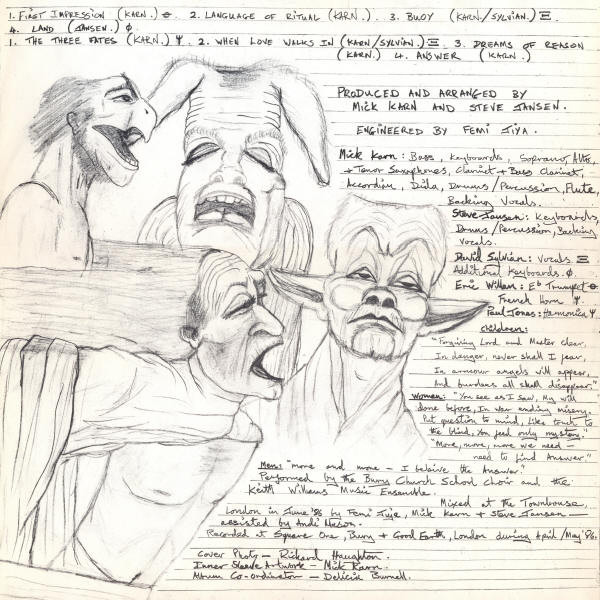 1. FIRST IMPRESSION (KARN.) 2. LANGUAGE OF RITUAL (KARN.). 3. BUOY (KARN./SYLVIAN.) Ξ
4. LAND (JANSEN.) Ø
1. THE THREE FATES (KARN.) Ψ. 2. WHEN LOVE WALKS IN (KARN/SYLVIAN.) Ξ. 3. DREAMS OF REASON
(KARN.) 4. ANSWER (KARN.)
PRODUCED AND ARRANGED BY
MICK KARN AND STEVE JANSEN.
ENGINEERED BY FEMI JIYA.
Mick Karn: Bass, Keyboards, Soprano, Alto,
+ Tenor Saxophones, Clarinet + Bass Clarinet,
Accordian, Dida, Drums/Percussion, Flute,
Backing Vocals.
Steve Jansen: Keyboards,
Drums/Percussion, Backing
Vocals.
David Sylvian: Vocals Ξ
Additional Keyboards. Ø
Eric : Eb Trumpet
French Horn Ψ
Paul Jones: Harmonica Ψ
Children:
"Forgiving Lord and Master dear,
In danger, never shall I fear,
In armour angels will appear,
And burdens all shall disappear."
Women: "You see as I saw, My will
done before, In war ending misery.
Put question to mind, Like touch to
the blind, You feel only mystery."
"More, more, more we need —
need to find Answer."
Men: "more and more — I believe the Answer."
Performed by the Bury Church School Choir and the
Keith Music Ensemble.
Mixed at the Townhouse,
London in June '86 by Femi Jiya, Mick Karn + Steve Jansen —
assisted by Andi
Recorded at Square One, Bury + Good Earth, London during April/May '86.
Cover Photo — Richard Haughton.
Inner Sleeve Artwork — Mick Karn.
Album Co-ordinator — Delicia Burnell.